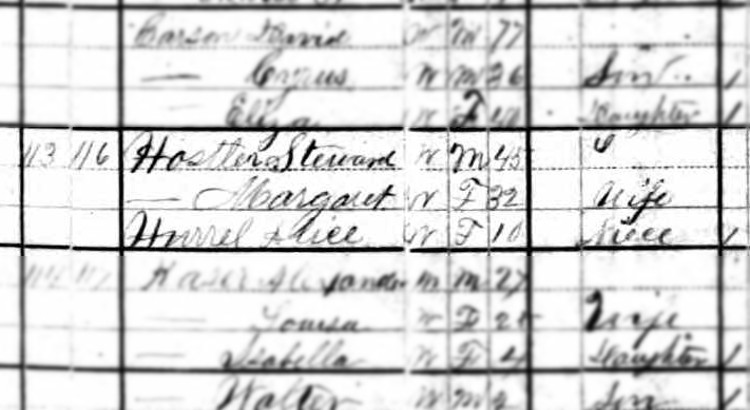 Carson David W M 77
— Cyrus W M 36 Son
Eliza W F Daughter
113 116 Hostler Steward W M 45
— Margaret W F 32 Wife
Hurrel Alice W F 10 Niece
Alexander M 27
— Louisa W F Wife
— Isabella W F 4 Daughter
— Walter W M Son